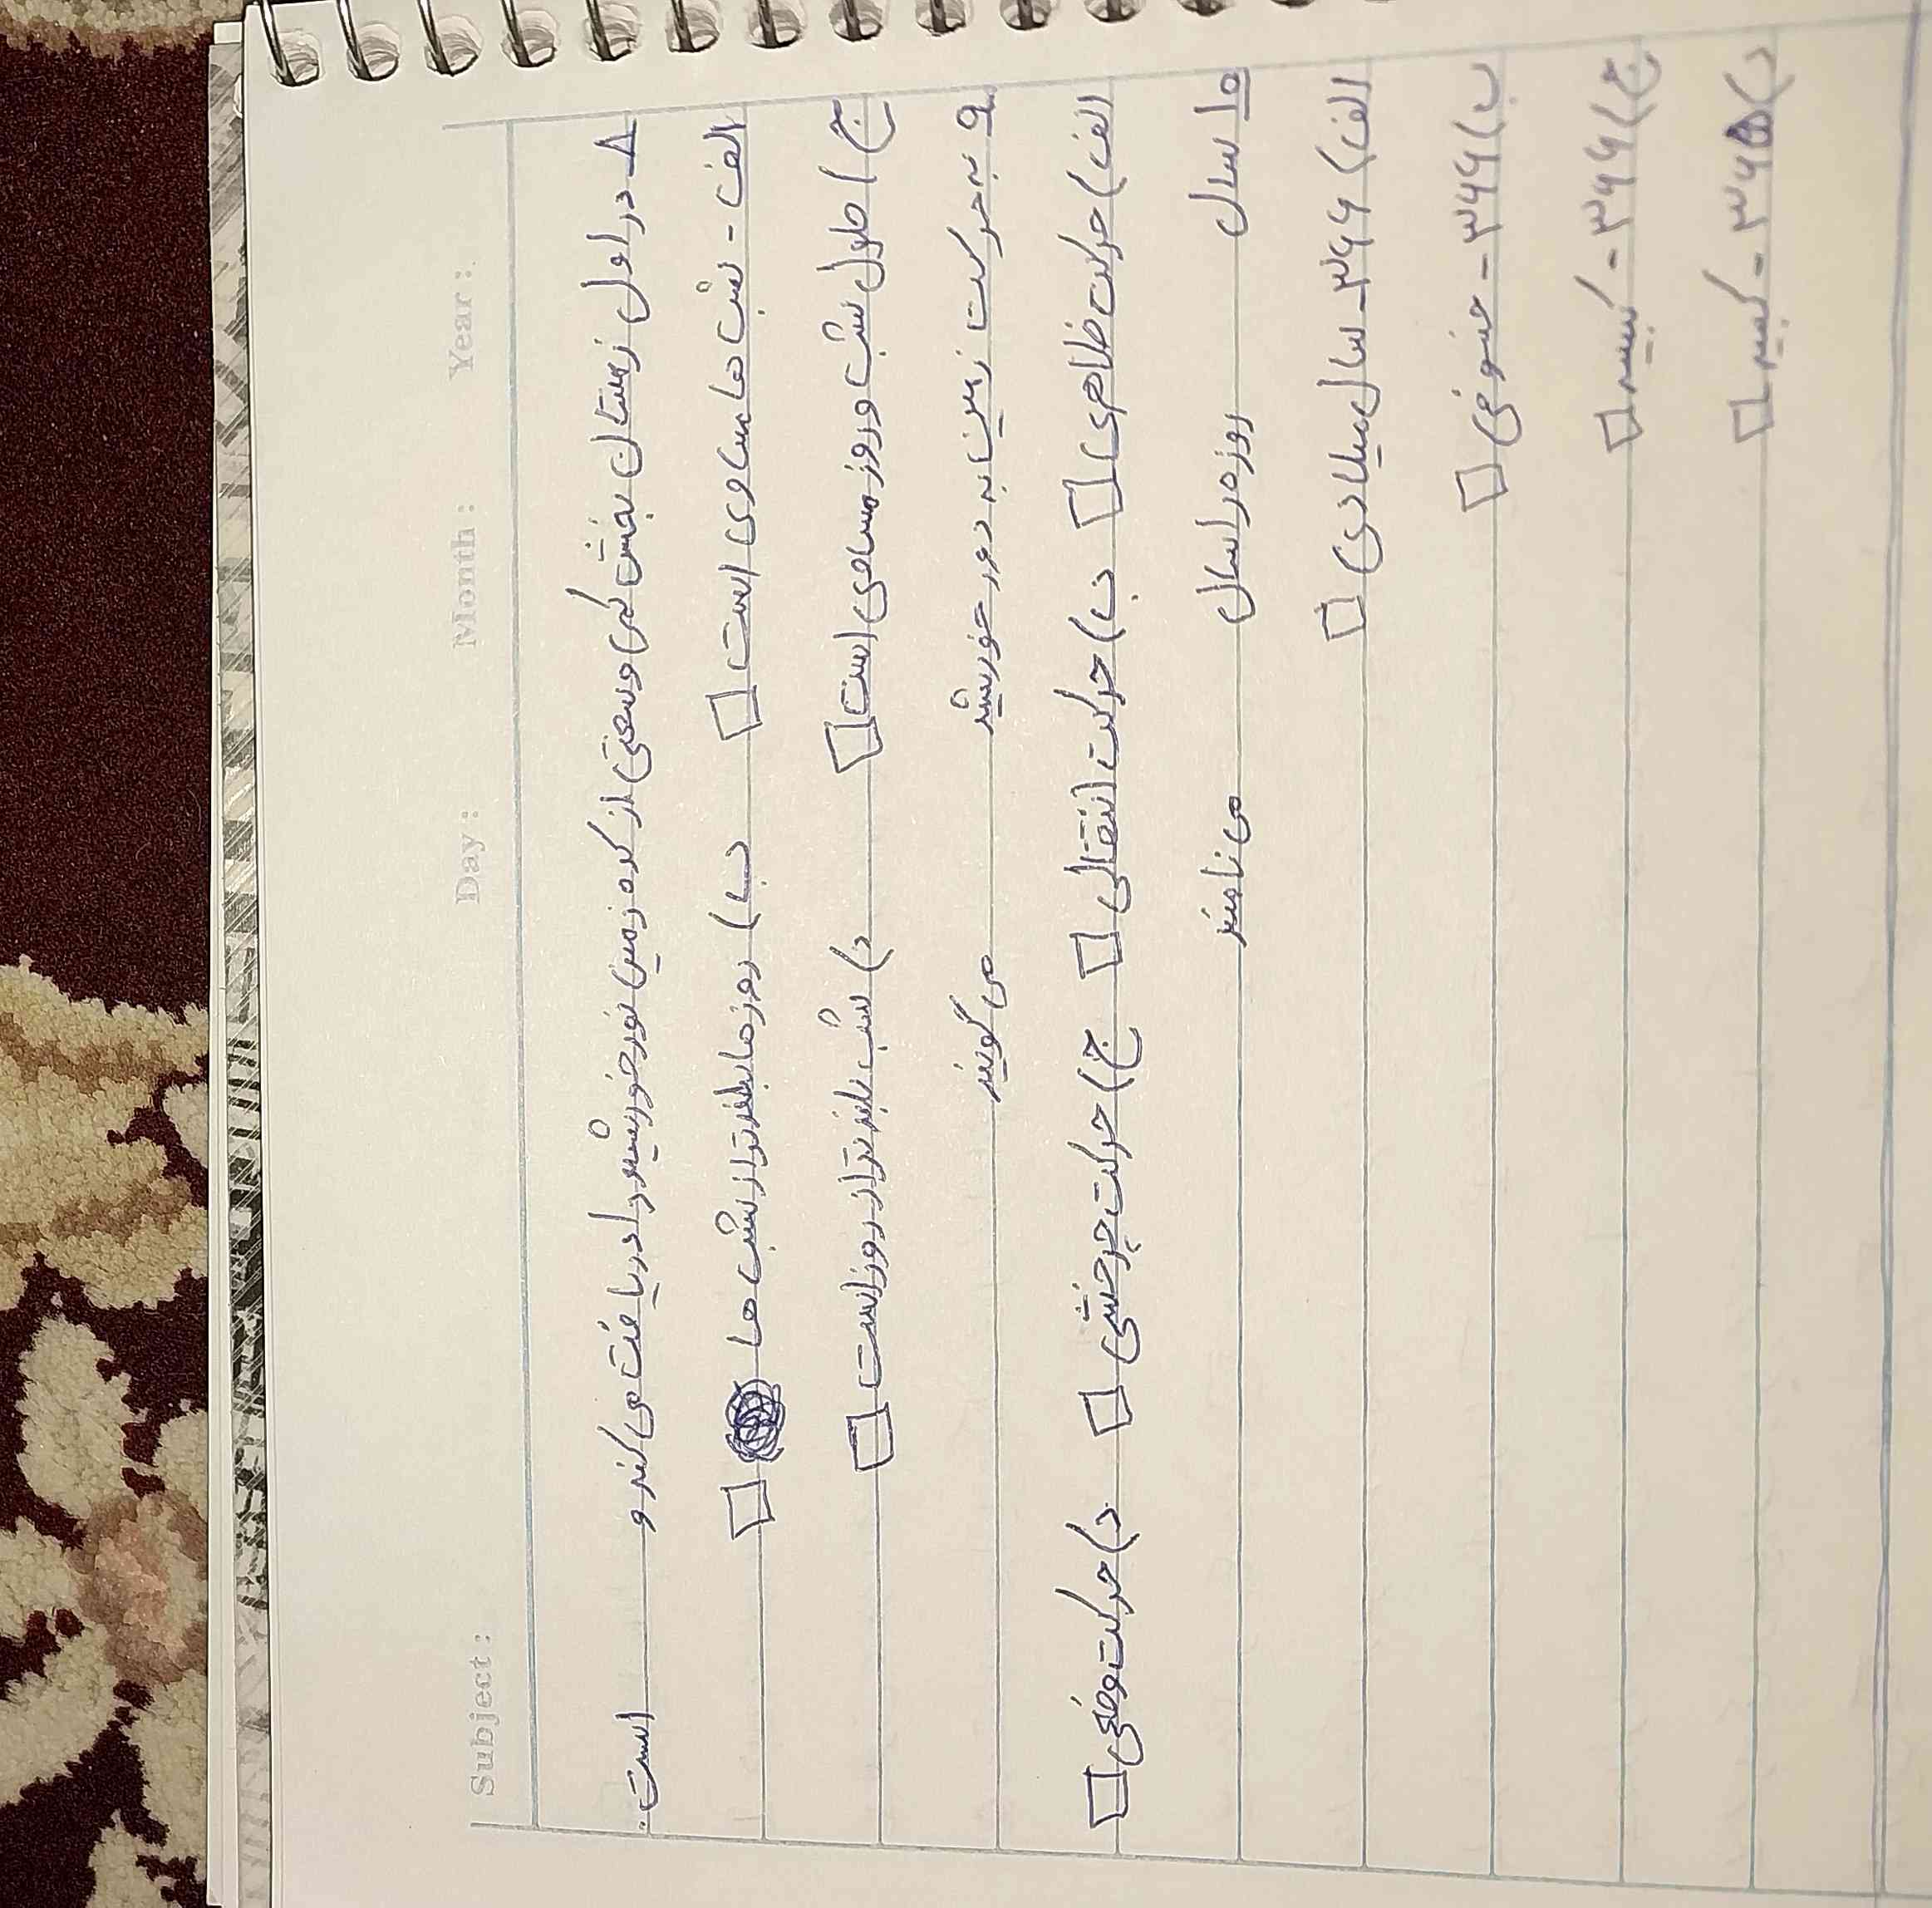 Subject: Day: Month: Year:
۸ در اول زمستان بخش کمی وسعتی از کره زمین نور خورشید را دریافت می کند و است.
الف - شب ها مساوی است □ ب) روزها بلندتر از شب ها □
ج) طول شب و روز مساوی است □ د) شب بلندتر از روز است □
۹ به حرکت زمین به دور خورشید می گویند
الف) حرکت ظاهری □ ب) حرکت انتقالی □ ج) حرکت چرخشی □ د) حرکت وضعی □
۱۰ سال روزه را سال می نامند
الف) ۳۶۶ - سال میلادی □
ب) ۳۶۶ - خسوفی □
ج) ۳۶۶ - کبیسه □
د) ۳۶۵ - کبیسه □